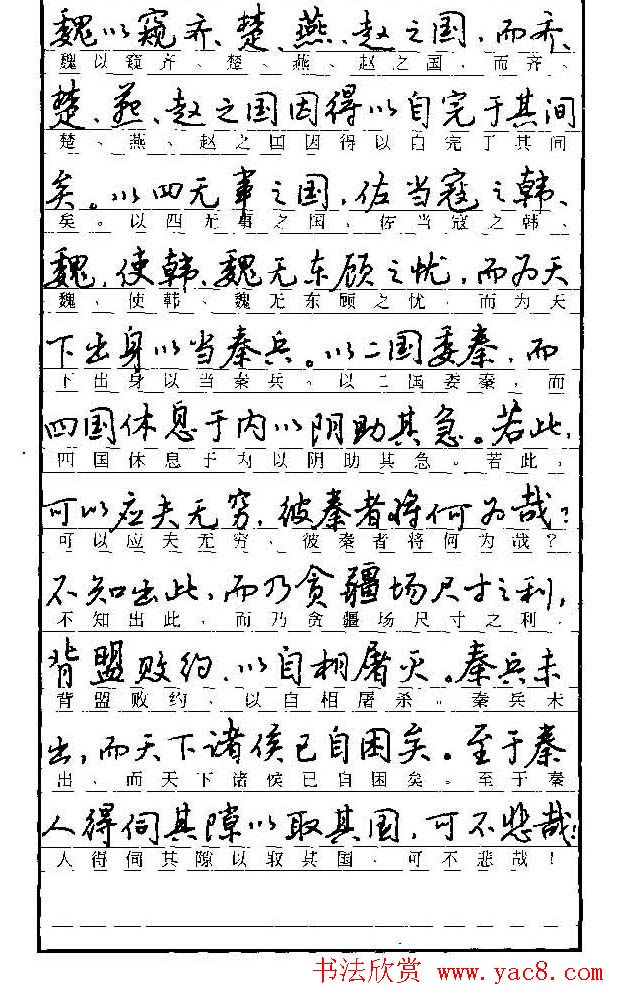 魏以窥齐、楚、燕、赵之国，而齐、
魏以窥齐、楚、燕、赵之国，而齐、
楚、燕、赵之国因得以自完于其间
楚、燕、赵之国因得以自完于其间
矣。以四无事之国，佐当寇之韩、
矣。以四无事之国，佐当寇之韩、
魏，使韩、魏无东顾之忧，而为天
魏，使韩、魏无东顾之忧，而为天
下出身以当秦兵。以二国委秦，而
下出身以当秦兵。以二国委秦，而
四国休息于内以阴助其急。若此，
四国休息于内以阴助其急。若此，
可以应夫无穷，彼秦者将何为哉？
可以应夫无穷，彼秦者将何为哉？
不知出此，而乃贪疆场尺寸之利，
不知出此，而乃贪疆场尺寸之利，
背盟败约，以自相屠灭。秦兵未
背盟败约，以自相屠杀。秦兵未
出，而天下诸侯已自困矣。至于秦
出，而天下诸侯已自困矣。至于秦
人得伺其隙以取其国，可不悲哉！
人得伺其隙以取其国，可不悲哉！
书法欣赏 www.yac8.com